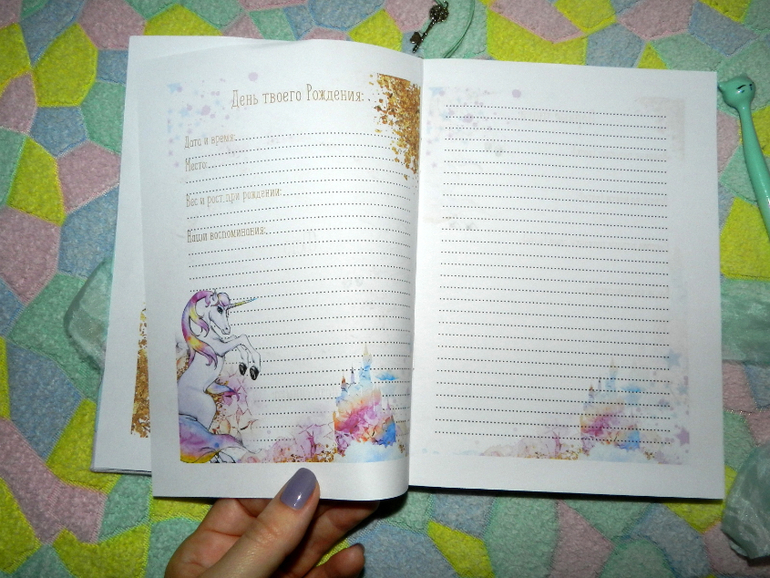 День твоего Рождения:
Дата и время:
Место:
Вес и рост при рождении:
Наши воспоминания: